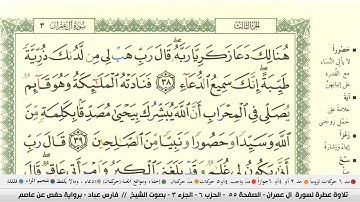 سُورَةُ آلِ عِمْرَانَ ٣
الجُزْءُ الثَّالِثُ
هُنَالِكَ دَعَا زَكَرِيَّا رَبَّهُۥ قَالَ رَبِّ هَبْ لِي مِن لَّدُنكَ ذُرِّيَّةً
طَيِّبَةً إِنَّكَ سَمِيعُ ٱلدُّعَآءِ ٣٨ فَنَادَتْهُ ٱلْمَلَٰٓئِكَةُ وَهُوَ قَآئِمٌ
يُصَلِّي فِي ٱلْمِحْرَابِ أَنَّ ٱللَّهَ يُبَشِّرُكَ بِيَحْيَىٰ مُصَدِّقًۢا بِكَلِمَةٍ مِّنَ
ٱللَّهِ وَسَيِّدًا وَحَصُورًا وَنَبِيًّا مِّنَ ٱلصَّٰلِحِينَ ٣٩ قَالَ رَبِّ
أَنَّىٰ يَكُونُ لِي غُلَٰمٌ وَقَدْ بَلَغَنِيَ ٱلْكِبَرُ وَٱمْرَأَتِي عَاقِرٌ قَالَ
حَصُورًا
لا يأتي النساء
آية
علامة على
تلاوة عطرة لسورة آل عمران - الصفحة ٥٥ - الحزب ٦ - الجزء ٣ - بصوت الشيخ // فارس عباد - برواية حفص عن عاصم